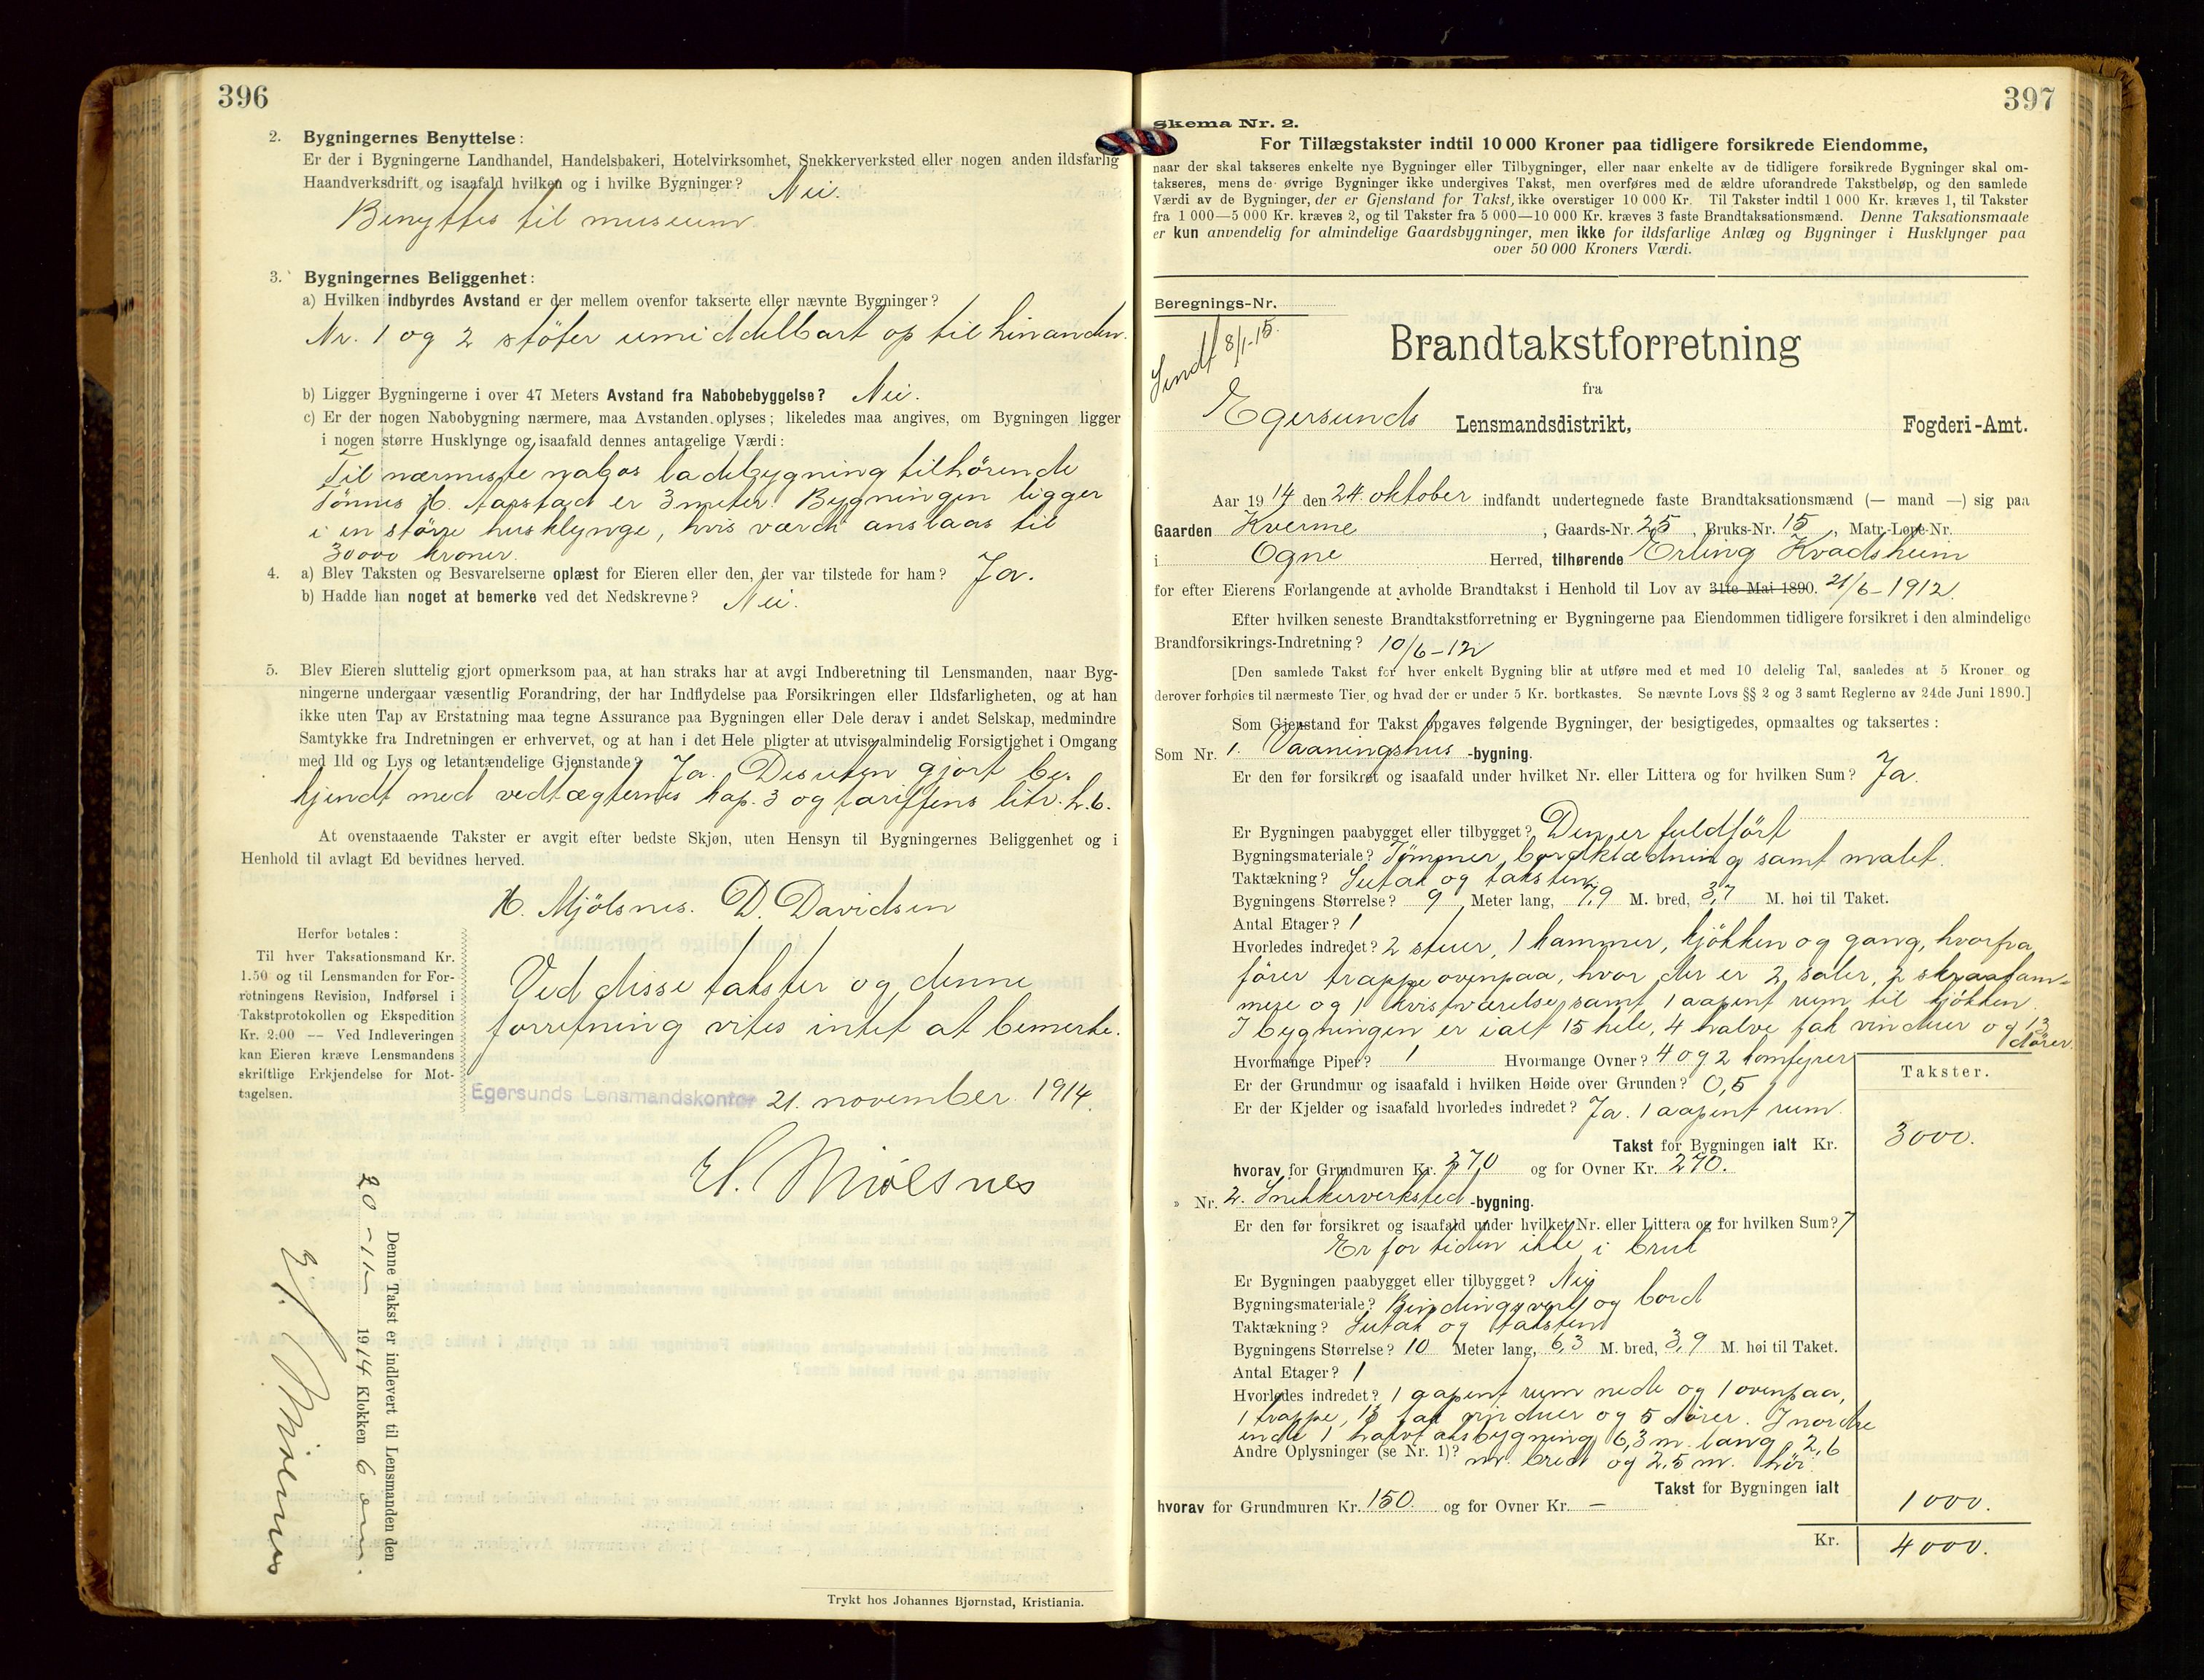 396
2. Bygningernes Benyttelse:
Er der i Bygningerne Landhandel, Handelsbakeri, Hotelvirksomhet, Snekkerverksted eller nogen anden ildsfarlig
Haandverksdrift og isaafald hvilken og i hvilke Bygninger? Nei.
Benyttes til museum.
3. Bygningernes Beliggenhet:
a) Hvilken indbyrdes Avstand er der mellem ovenfor takserte eller nævnte Bygninger?
Nr. 1 og 2 støter umiddelbart op til hinanden.
b) Ligger Bygningerne i over 47 Meters Avstand fra Nabobebyggelse? Nei.
c) Er der nogen Nabobygning nærmere, maa Avstanden oplyses; likeledes maa angives, om Bygningen ligger
i nogen større Husklynge og isaafald dennes antagelige Værdi:
Til nærmeste nabos ladebygning tilhörende
Tönnes H. Aarstad er 3 meter. Bygningen ligger
i en större husklynge, hvis værdi anslaas til
30000 kroner.
4. a) Blev Taksten og Besvarelserne oplæst for Eieren eller den, der var tilstede for ham? Ja.
b) Hadde han noget at bemerke ved det Nedskrevne? Nei.
5. Blev Eieren sluttelig gjort opmerksom paa, at han straks har at avgi Indberetning til Lensmanden, naar Byg-
ningerne undergaar væsentlig Forandring, der har Indflydelse paa Forsikringen eller Ildsfarligheten, og at han
ikke uten Tap av Erstatning maa tegne Assurance paa Bygningen eller Dele derav i andet Selskap, medmindre
Samtykke fra Indretningen er erhvervet, og at han i det Hele pligter at utvise almindelig Forsigtighet i Omgang
med Ild og Lys og letantændelige Gjenstande? Ja. Desuten gjort be-
kjendt med vedtægternes kap. 3 og tariffens litr. h. 6.
At ovenstaaende Takster er avgit efter bedste Skjøn, uten Hensyn til Bygningernes Beliggenhet og i
Henhold til avlagt Ed bevidnes herved.
H. Mjölsnes. D. Davidsen
Herfor betales:
Til hver Taksationsmand Kr.
1.50 og til Lensmanden for For-
retningens Revision, Indførsel i
Takstprotokollen og Ekspedition
Kr. 2.00 — Ved Indleveringen
kan Eieren kræve Lensmandens
skriftlige Erkjendelse for Mot-
tagelsen.
Ved disse takster og denne
forretning vites intet at bemerke.
Egersunds Lensmandskontor 21. november 1914.
H. Mjölsnes
Denne Takst er indlevert til Lensmanden den
20-11- 1914 Klokken 6 em.
H. Mjölsnes
Trykt hos Johannes Bjørnstad, Kristiania.
397
Skema Nr. 2.
For Tillægstakster indtil 10 000 Kroner paa tidligere forsikrede Eiendomme,
naar der skal takseres enkelte nye Bygninger eller Tilbygninger, eller naar enkelte av de tidligere forsikrede Bygninger skal om-
takseres, mens de øvrige Bygninger ikke undergives Takst, men overføres med de ældre uforandrede Takstbeløp, og den samlede
Værdi av de Bygninger, der er Gjenstand for Takst, ikke overstiger 10 000 Kr. Til Takster indtil 1 000 Kr. kræves 1, til Takster
fra 1 000—5 000 Kr. kræves 2, og til Takster fra 5 000—10 000 Kr. kræves 3 faste Brandtaksationsmænd. Denne Taksationsmaate
er kun anvendelig for almindelige Gaardsbygninger, men ikke for ildsfarlige Anlæg og Bygninger i Husklynger paa
over 50 000 Kroners Værdi.
Beregnings-Nr.
Sendt 8/1-15.
Brandtakstforretning
fra
Egersunds Lensmandsdistrikt, Fogderi-Amt.
Aar 1914 den 24. oktober indfandt undertegnede faste Brandtaksationsmænd (— mand —) sig paa
Gaarden Kverme, Gaards-Nr. 25, Bruks-Nr. 15, Matr.-Løpe-Nr.
i Ogne Herred, tilhørende Erling Kvadsheim
for efter Eierens Forlangende at avholde Brandtakst i Henhold til Lov av 31te Mai 1890. 21/6-1912.
Efter hvilken seneste Brandtakstforretning er Bygningerne paa Eiendommen tidligere forsikret i den almindelige
Brandforsikrings-Indretning? 10/6-12
[Den samlede Takst for hver enkelt Bygning blir at utføre med et med 10 delelig Tal, saaledes at 5 Kroner og
derover forhøies til nærmeste Tier, og hvad der er under 5 Kr. bortkastes. Se nævnte Lovs §§ 2 og 3 samt Reglerne av 24de Juni 1890.]
Som Gjenstand for Takst opgaves følgende Bygninger, der besigtigedes, opmaaltes og taksertes:
Som Nr. 1. Vaaningshus -bygning.
Er den før forsikret og isaafald under hvilket Nr. eller Littera og for hvilken Sum? Ja.
Er Bygningen paabygget eller tilbygget? Den er fuldfört
Bygningsmateriale? Tömmer, bordklædning samt malet.
Taktækning? Sutak og taksten
Bygningens Størrelse? 9 Meter lang, 7,9 M. bred, 3,7 M. høi til Taket.
Antal Etager? 1
Hvorledes indredet? 2 stuer, 1 kammer, kjökken og gang, hvorfra
förer trappe ovenpaa, hvor der er 2 saler, 2 skraakam-
mere og 1 kvistværelse samt 1 aapent rum til kjökken.
I bygningen er ialt 15 hele, 4 halve fak vinduer og 13
dörer.
Hvormange Piper? 1 Hvormange Ovner? 4 og 2 komfyrer
Er der Grundmur og isaafald i hvilken Høide over Grunden? 0,5
Er der Kjelder og isaafald hvorledes indredet? Ja. 1 aapent rum.
Takster.
Takst for Bygningen ialt Kr. 3000.
hvorav for Grundmuren Kr. 370 og for Ovner Kr. 270.
» Nr. 2. Snekkerverksted -bygning.
Er den før forsikret og isaafald under hvilket Nr. eller Littera og for hvilken Sum?
Er for tiden ikke i bruk
Er Bygningen paabygget eller tilbygget? Nei
Bygningsmateriale? Bindingsverk og bord
Taktækning? Sutak og taksten
Bygningens Størrelse? 10 Meter lang, 6,3 M. bred, 3,9 M. høi til Taket.
Antal Etager? 1
Hvorledes indredet? 1 aapent rum nede og 1 ovenpaa,
1 trappe, fak vinduer og 5 dörer. I nordre
ende 1 halvtaksbygning 6,3 m. lang, 2,6
Andre Oplysninger (se Nr. 1)? m. bred og 2,5 m. höi.
Takst for Bygningen ialt
hvorav for Grundmuren Kr. 150 og for Ovner Kr. — 1000.
Kr. 4000.